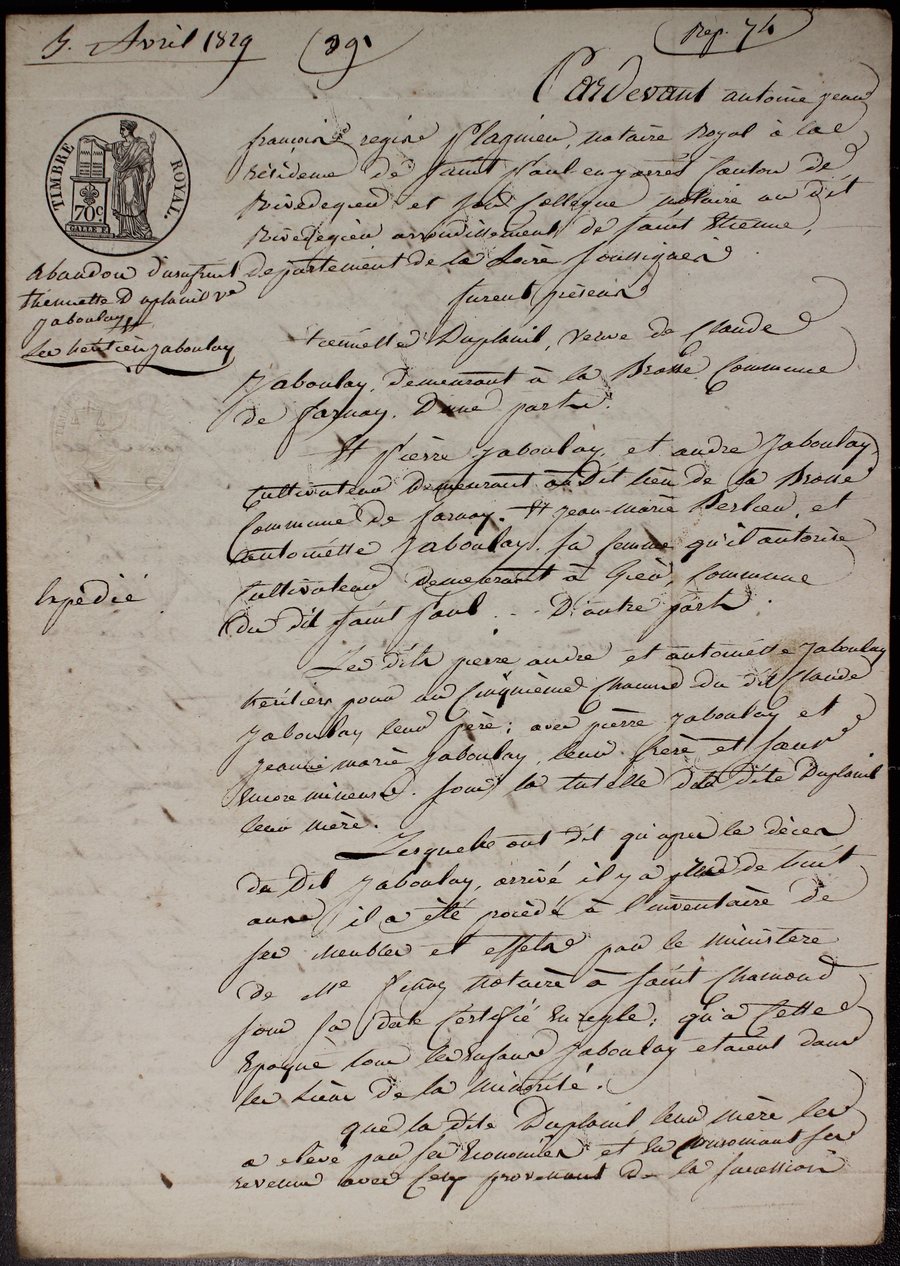 5. Avril 1829
89
Rep. 74
TIMBRE ROYAL.
70c
Pardevant antoine jean
françois regis notaire Royal à la
résidence de Saint Paul en jarrès Canton de
Rivedegier et son Collegue notaire au dit
Rivedegier arrondissement de Saint Etienne,
departement de la Loire soussignés
furent présens
Abandon d'usufruit
thiennette Duplanil ve
Jaboulay
Les heritiers Jaboulay
Duplanil, veuve de Claude
Jaboulay, demeurant à la Brosse Commune
de farnay. D'une part.
Et Pièrre Jaboulay, et andre Jaboulay
Cultivateurs Demeurant audit lieu de la Brosse
Commune de farnay. Et jean-marie et
antoinètte Jaboulay sa femme qu'il autorise
Cultivateurs demeurant à Commune
du dit Saint Paul .. D'autre part
Expédié
Les dits pierre andre et antoinètte Jaboulay
héritiers pour un Cinquième Chacun du dit Claude
Jaboulay leur père; avec pièrre Jaboulay et
jeanne marie Jaboulay, leur frère et soeur
encore mineurs. sous la tutelle de la dite Duplanil
leur mère.
Lesquels ont dit qu'après le décès
du Dit Jaboulay, arrivé il y a plus de huit
ans il a été procédé à l'inventaire de
ses meubles et effets par le ministere
de Me notaire à Saint Chamond
sous sa date Certifié en regle; qu'à Cette
Epoque tous les enfans Jaboulay etaient dans
les liens de la minorité.
que la dite Duplanil leur mère les
a elevé par ses Economies et en Consomant ses
revenus avec Ceux provenant de la succession